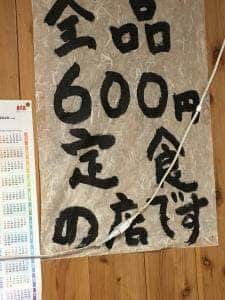 全品
600円
定食
の店です